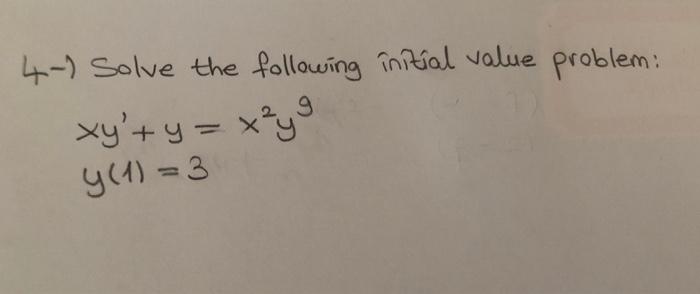 4-) Solve the following initial value problem:
xy' + y = x²y⁹
y(1) = 3